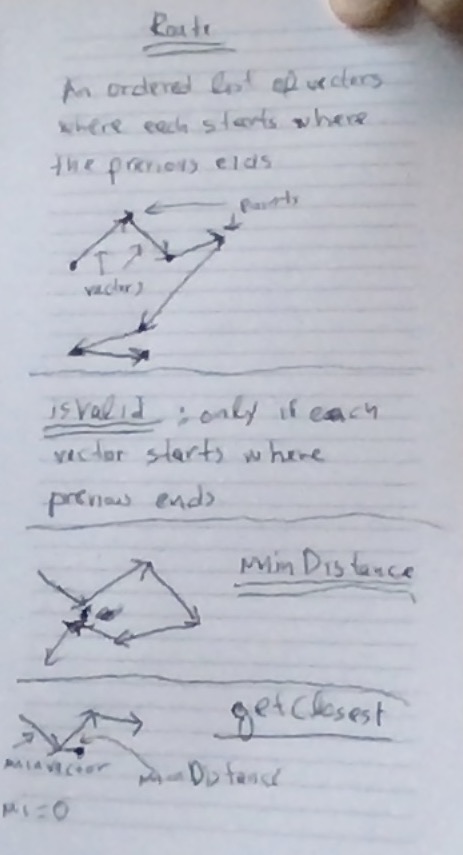 Route
An ordered list of vectors
where each starts where
the previous ends
Points
vectors
isValid : only if each
vector starts where
previous ends
minDistance
getClosest
minvector
minDistance